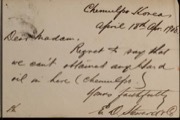 Chemulpo Korea
April 18th
Dear Madam.
Regret to say that
we can't obtained any
oil in here (Chemulpo.)
Yours faithfully
E. D.